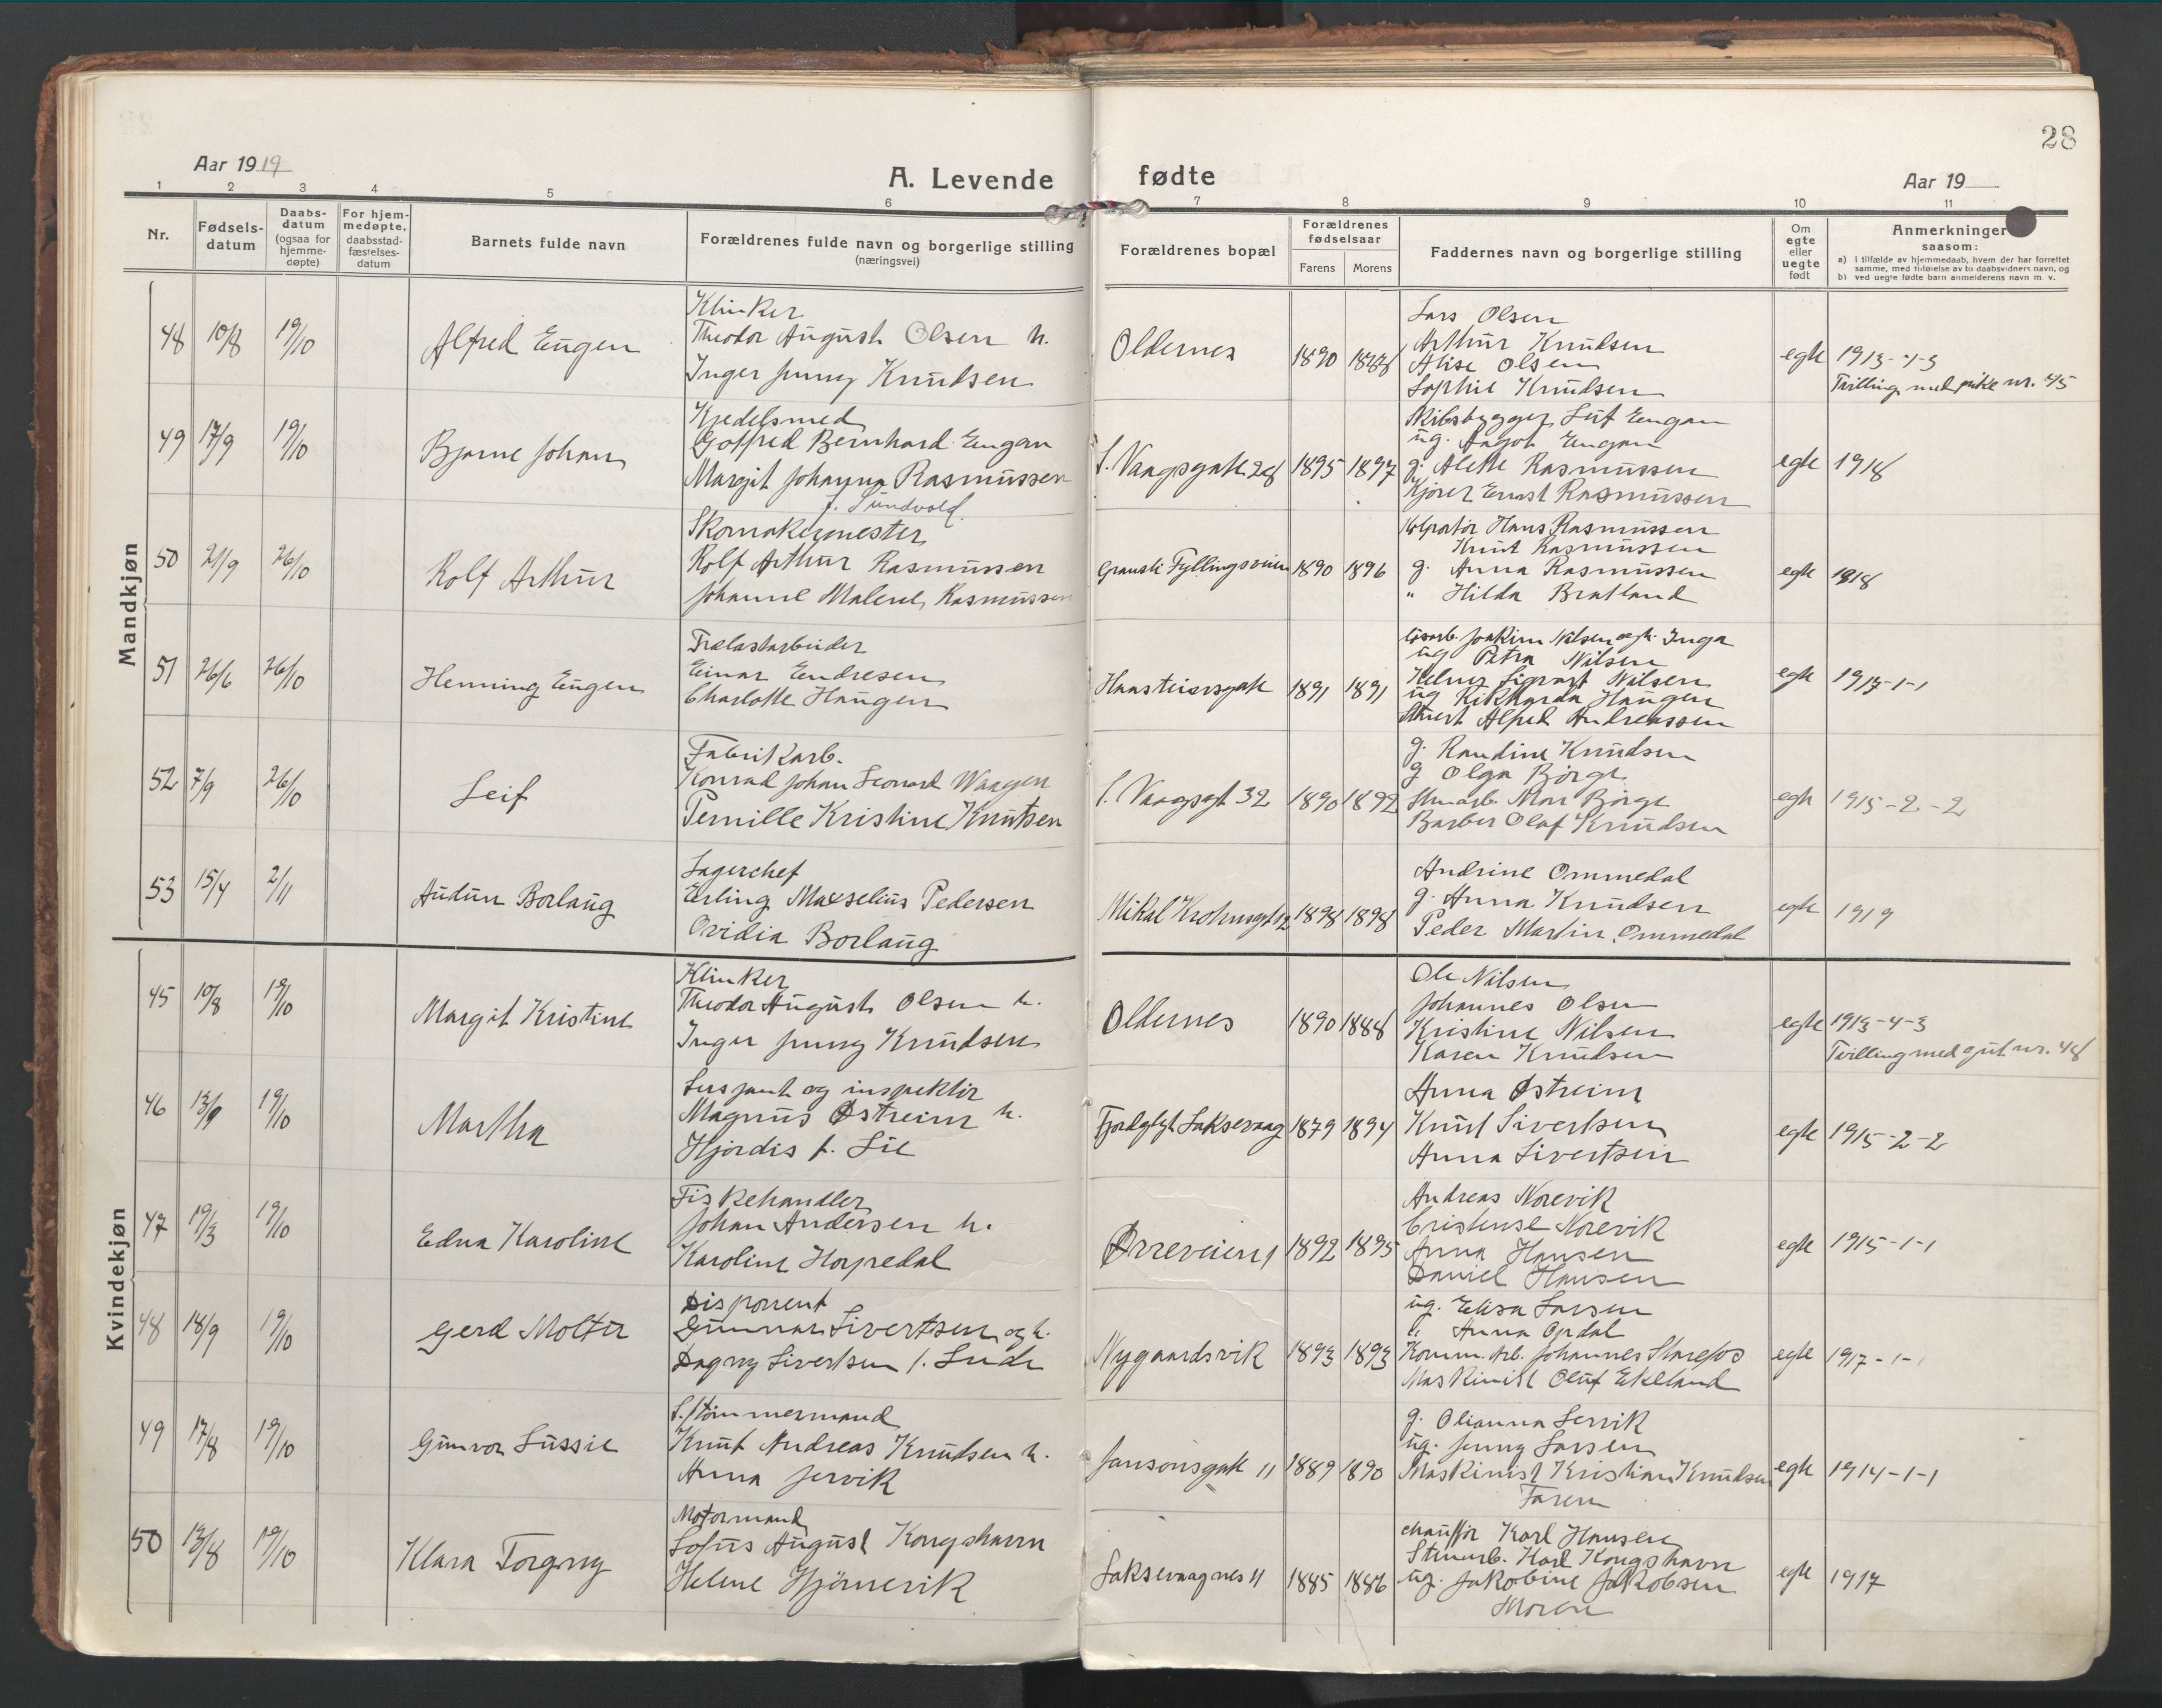 28
Aar 1919
A. Levende fødte
Aar 19
1 2 3 4 5 6 7 8 9 10 11
Nr.
Fødselsdatum
Daabsdatum (ogsaa for hjemmedøpte)
For hjemmedøpte, daabsstadfæstelsesdatum
Barnets fulde navn
Forældrenes fulde navn og borgerlige stilling
(næringsvei)
Forældrenes bopæl
Forældrenes fødselsaar
Farens Morens
Faddernes navn og borgerlige stilling
Om egte eller uegte født
Anmerkninger
saasom:
a) i tilfælde av hjemmedaab, hvem der har forrettet samme, med tilføielse av to daabsvidners navn, og
b) ved uegte fødte barn anmelderens navn m. v.
Mandkjøn
48 10/8 19/10 Alfred Eugen
Klinker
Theodor August Olsen h.
Inger Jenny Knudsen
Oldernes 1890 1888
Lars Olsen
Arthur Knudsen
Alise Olsen
Sophie Knudsen
egte 1913-4-3
Tvilling med pike nr. 45
49 17/9 19/10 Bjarne Johan
Kjedelsmed
Gotfred Bernhard Engan
Margit Johanna Rasmussen
f. Sundvold
S. Vaagsgate 28 1895 1897
Skibsbygger Leif Engan
ug. Aagot Engan
g. Alette Rasmussen
Kjører Ernst Rasmussen
egte 1918
50 21/9 26/10 Rolf Arthur
Skomakermester
Rolf Arthur Rasmussen
Johanne Malene Rasmussen
Fyllingsveien 1890 1896
Kolportør Hans Rasmussen
Knut Rasmussen
g. Anna Rasmussen
" Hilda Bratland
egte 1918
51 26/6 26/10 Henning Eugen
Trælastarbeider
Einar Endresen
Charlotte Haugen
Hansteensgate 1891 1891
Joakim Nilsen og h. Inga
ug Petra Nilsen
Nilsen
ug Rikharda Haugen
Alfred Andreassen
egte 1917-1-1
52 7/9 26/10 Leif
Fabrikarb.
Konrad Johan Leonard Waagen
Pernille Kristine Knutsen
S. Vaagsgt 32 1890 1892
g. Randine Knudsen
g Olga Bjørge
Bjørge
Barber Olaf Knudsen
egte 1915-2-2
53 15/4 2/11 Audun Borlaug
Lagerchef
Erling Maxselius Pedersen
Ovidia Borlaug
Mikal Krohnsgt 12 1898 1898
Andrine Ommedal
g. Anna Knudsen
Peder Martin Ommedal
egte 1919
Kvindekjøn
45 10/8 19/10 Margit Kristine
Klinker
Theodor August Olsen h.
Inger Jenny Knudsen
Oldernes 1890 1888
Ole Nilsen
Johannes Olsen
Kristine Nilsen
Karen Knudsen
egte 1913-4-3
Tvilling med gut nr. 48
46 13/9 19/10 Martha
Sersjant og inspektør
Magnus Østreim h.
Hjørdis f. Lie
Laksevaag 1879 1894
Anna Østreim
Knut Sivertsen
Anna Sivertsen
egte 1915-2-2
47 19/3 19/10 Edna Karoline
Fiskehandler
Johan Andersen h.
Karoline Hopsdal
Ørreveien 1 1892 1895
Andreas Norevik
Cristense Norevik
Anna Hansen
Daniel Hansen
egte 1915-1-1
48 18/9 19/10 Gerd Molter
Disponent
Gunnar Sivertsen og h.
Dagny Sivertsen f. Lude
Nygaardsvik 1893 1893
ug. Elisa Larsen
" Anna Opdal
Komm. Arb. Johannes Starefos
Maskinist Oluf Ekeland
egte 1917-1-1
49 17/8 19/10 Gunvor Lussie
S. / tømmermand
Knut Andreas Knudsen h.
Anna Jervik
Jansonsgate 11 1889 1890
g. Olianna Jervik
ug. Jenny Larsen
Maskinist Kristian Knudsen
Faren
egte 1914-1-1
50 13/8 19/10 Klara Torgny
Motormand
Sofus August Kongshavn
Helene Hjørnevik
Laksevaagnes 11 1885 1886
chauffør Karl Hansen
Stenarb. Karl Kongshavn
ug. Jakobine Jakobsen
Moren
egte 1917